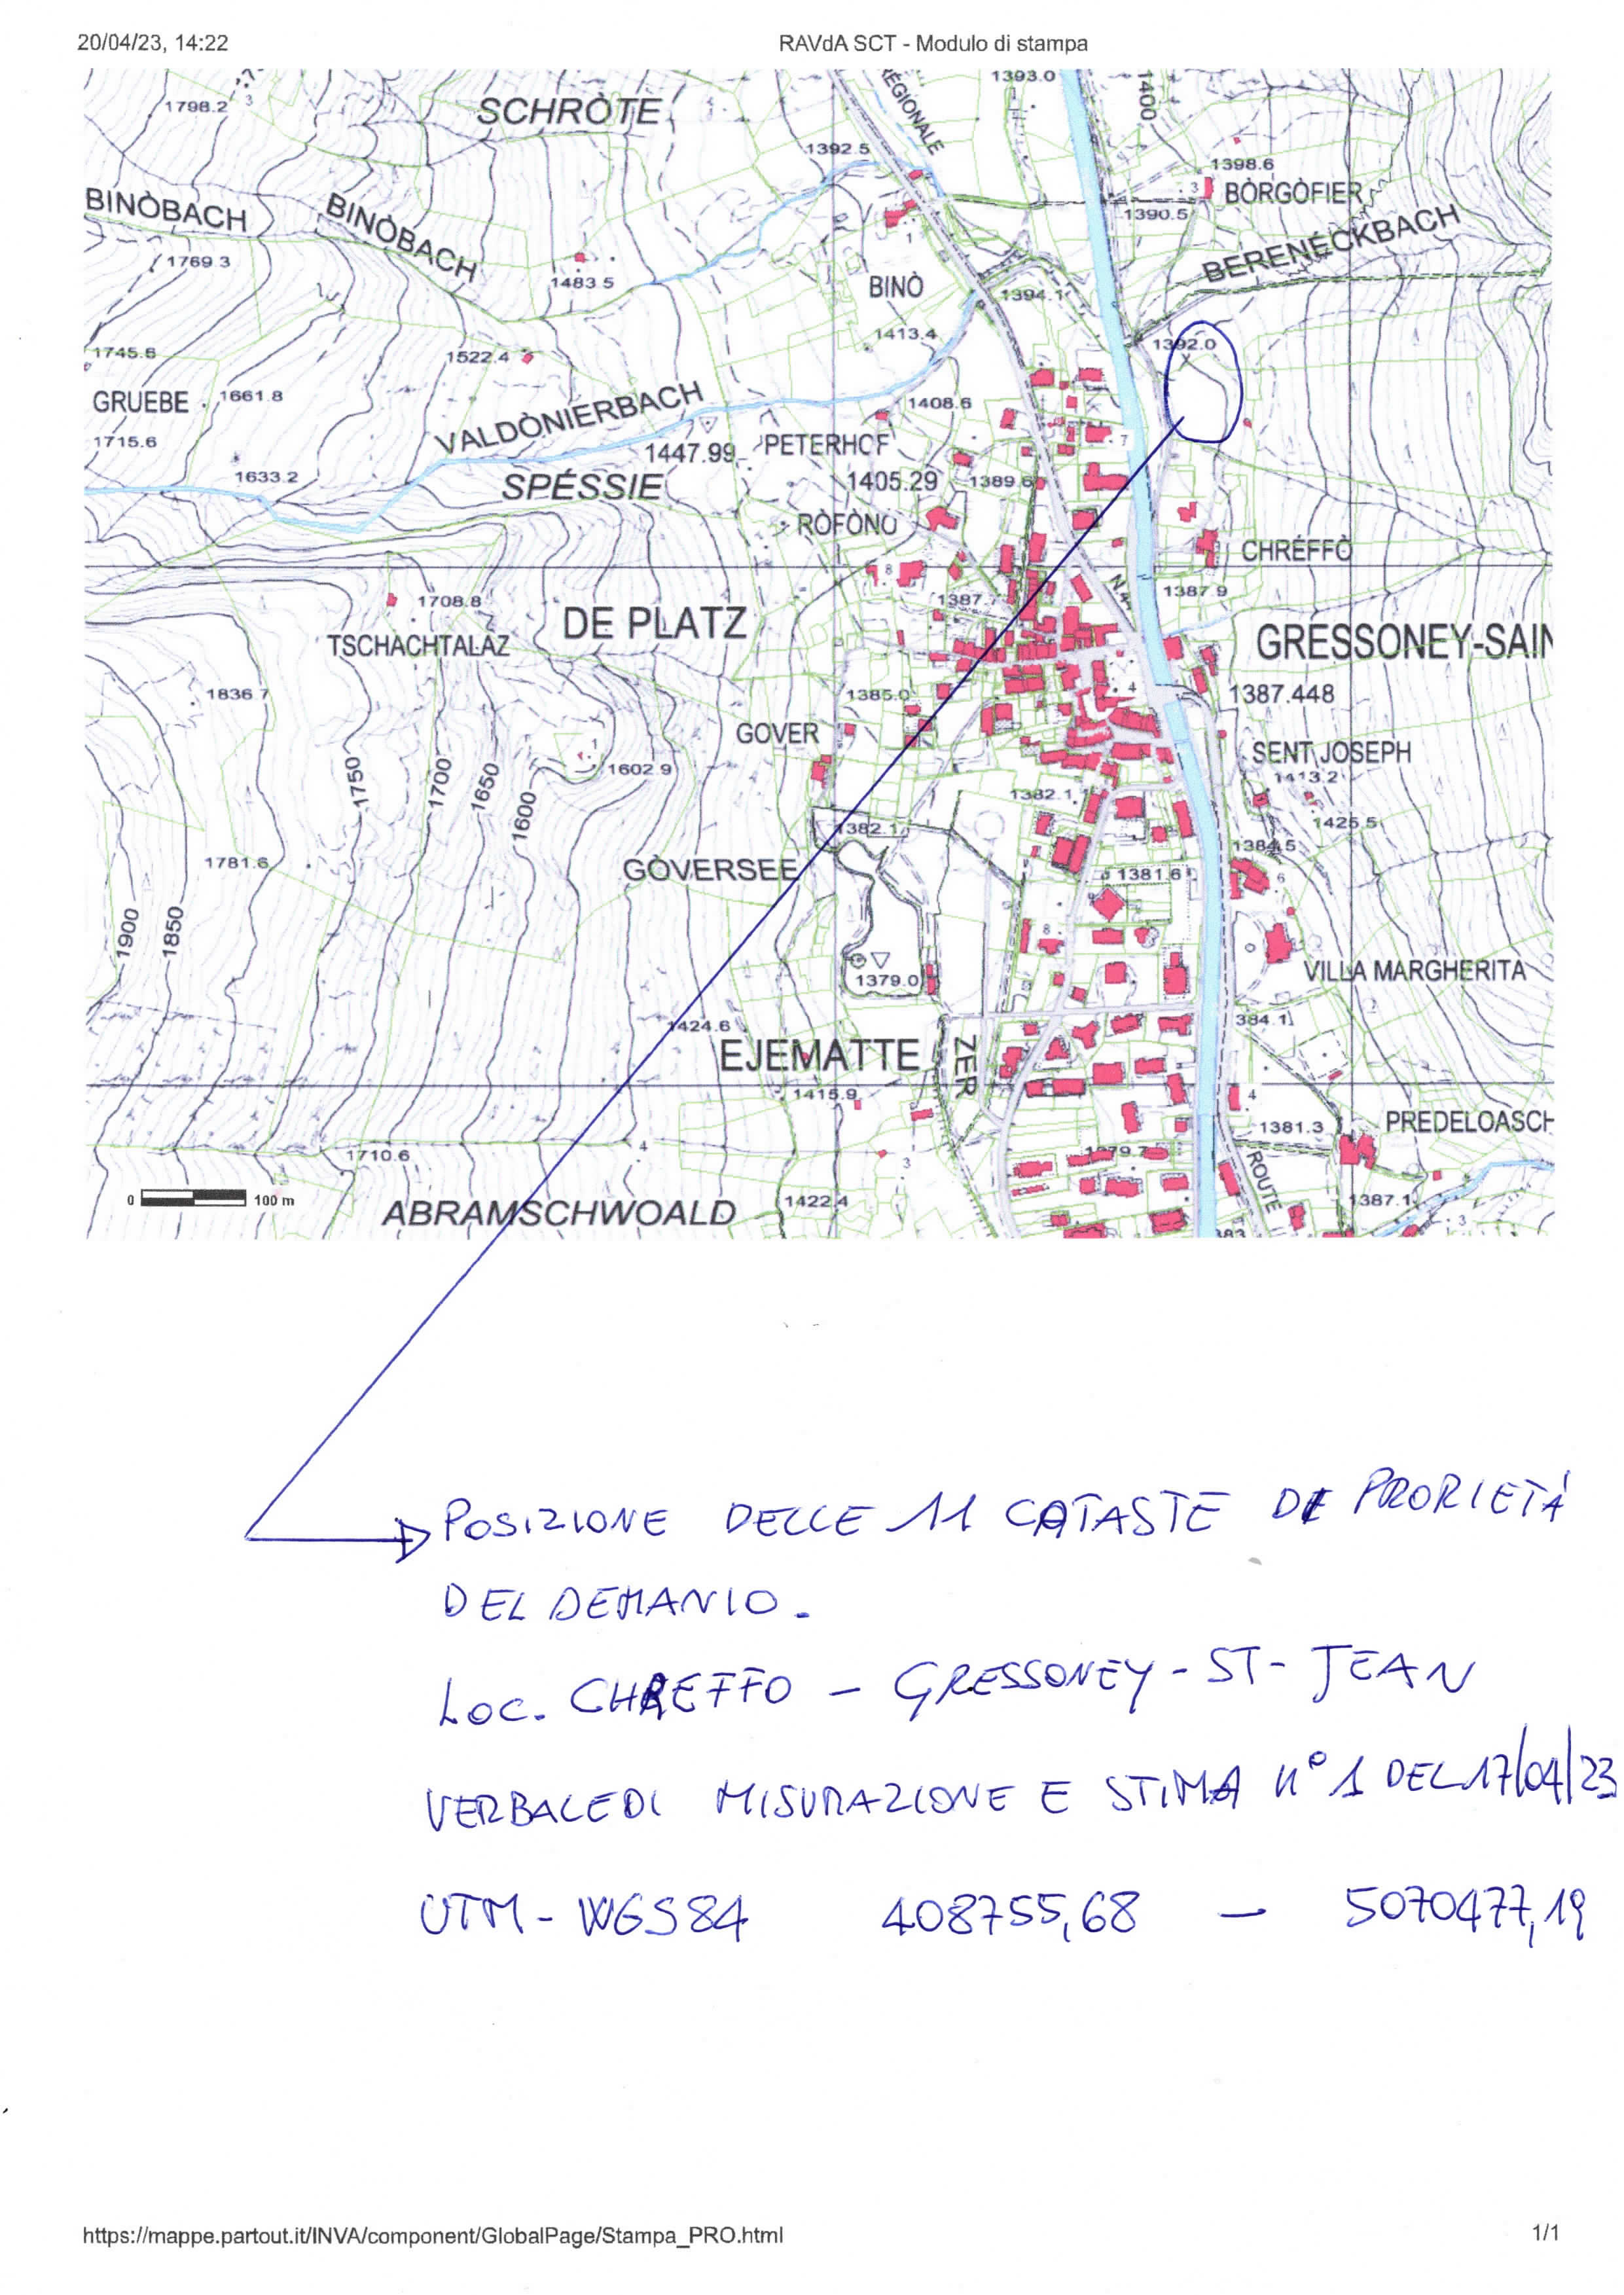 20/04/23, 14:22
RAVdA SCT - Modulo di stampa
1393.0
RÉGIONALE
1400
1798.2
3
SCHRÒTE
1392.5
1398.6
3
BÒRGÒFIER
BINÒBACH
BINÒBACH
1390.5
1
BERENÉCKBACH
1769.3
1483.5
BINÒ
1394.1
1413.4
1392.0
1745.6
1522.4
GRUEBE
1661.8
1408.6
VALDÒNIERBACH
1715.6
1447.99
PETERHOF
7
1633.2
SPÉSSIE
1405.29
1389.6
RÒFÒNO
CHRÉFFÒ
8
1708.8
1387.7
1387.9
DE PLATZ
TSCHACHTALAZ
GRESSONEY-SAIN
1836.7
1385.0
4
1387.448
GOVER
SENT JOSEPH
1
1602.9
1413.2
1750
1700
1650
1600
1382.1
1425.5
1382.1
1384.5
1781.6
GÒVERSEE
1381.6
6
1900
1850
8
1379.0
VILLA MARGHERITA
1424.6
384.1
EJEMATTE
ZER
1415.9
4
1381.3
PREDELOASCH
1710.6
4
3
1379.7
ROUTE
0
100 m
ABRAMSCHWOALD
1422.4
1387.1
3
383
POSIZIONE DELLE 11 CATASTE DI PRORIETÀ
DEL DEMANIO.
LOC. CHREFFO - GRESSONEY-ST-JEAN
VERBALE DI MISURAZIONE E STIMA N° 1 DEL 17/04/23
UTM-WGS84 408755,68 - 5070477,19
https://mappe.partout.it/INVA/component/GlobalPage/Stampa_PRO.html
1/1